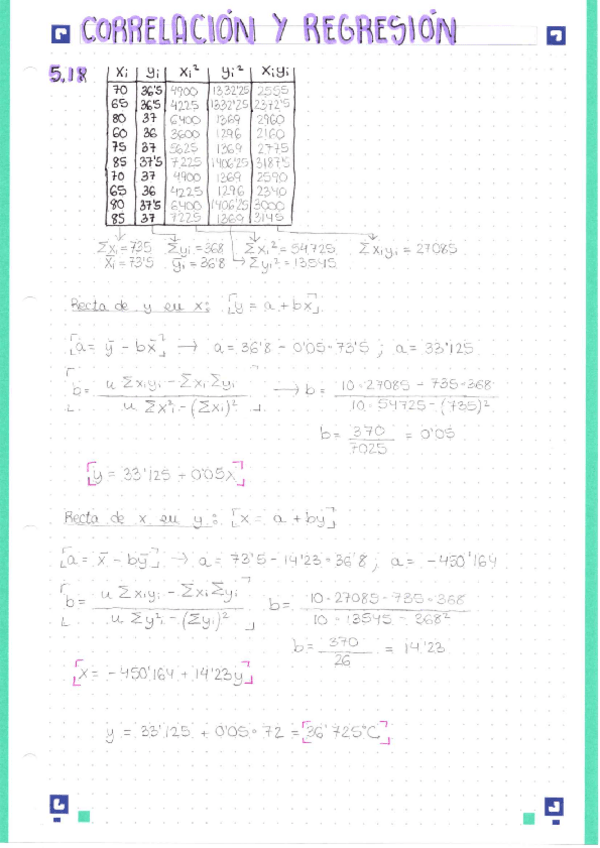 CORRELACIÓN Y REGRESIÓN
5.18
xi yi xi² yi² xiyi
70 36'5 4900 1332'25 2555
65 36'5 4225 1332'25 2372'5
80 37 6400 1369 2960
60 36 3600 1296 2160
75 37 5625 1369 2775
85 37'5 7225 1406'25 3187'5
70 37 4900 1369 2590
65 36 4225 1296 2340
80 37'5 6400 1406'25 3000
85 37 7225 1369 3145
Σxi = 735 Σyi = 368 Σxi² = 54725 Σxiyi = 27085
x̄i = 73'5 ȳi = 36'8 Σyi² = 13545
Recta de y en x: y = a + bx
a = ȳ - bx̄ → a = 36'8 - 0'05·73'5 ; a = 33'125
b = n Σxiyi - Σxi Σyi / n Σx²i - (Σxi)² → b = 10·27085 - 735·368 / 10·54725 - (735)²
b = 370 / 7025 = 0'05
y = 33'125 + 0'05x
Recta de x en y: x = a + by
a = x̄ - bȳ → a = 73'5 - 14'23·36'8 ; a = -450'164
b = n Σxiyi - Σxi Σyi / n Σy²i - (Σyi)² b = 10·27085 - 735·368 / 10·13545 - 368²
b = 370 / 26 = 14'23
x = -450'164 + 14'23y
y = 33'125 + 0'05·72 = 36'725°C